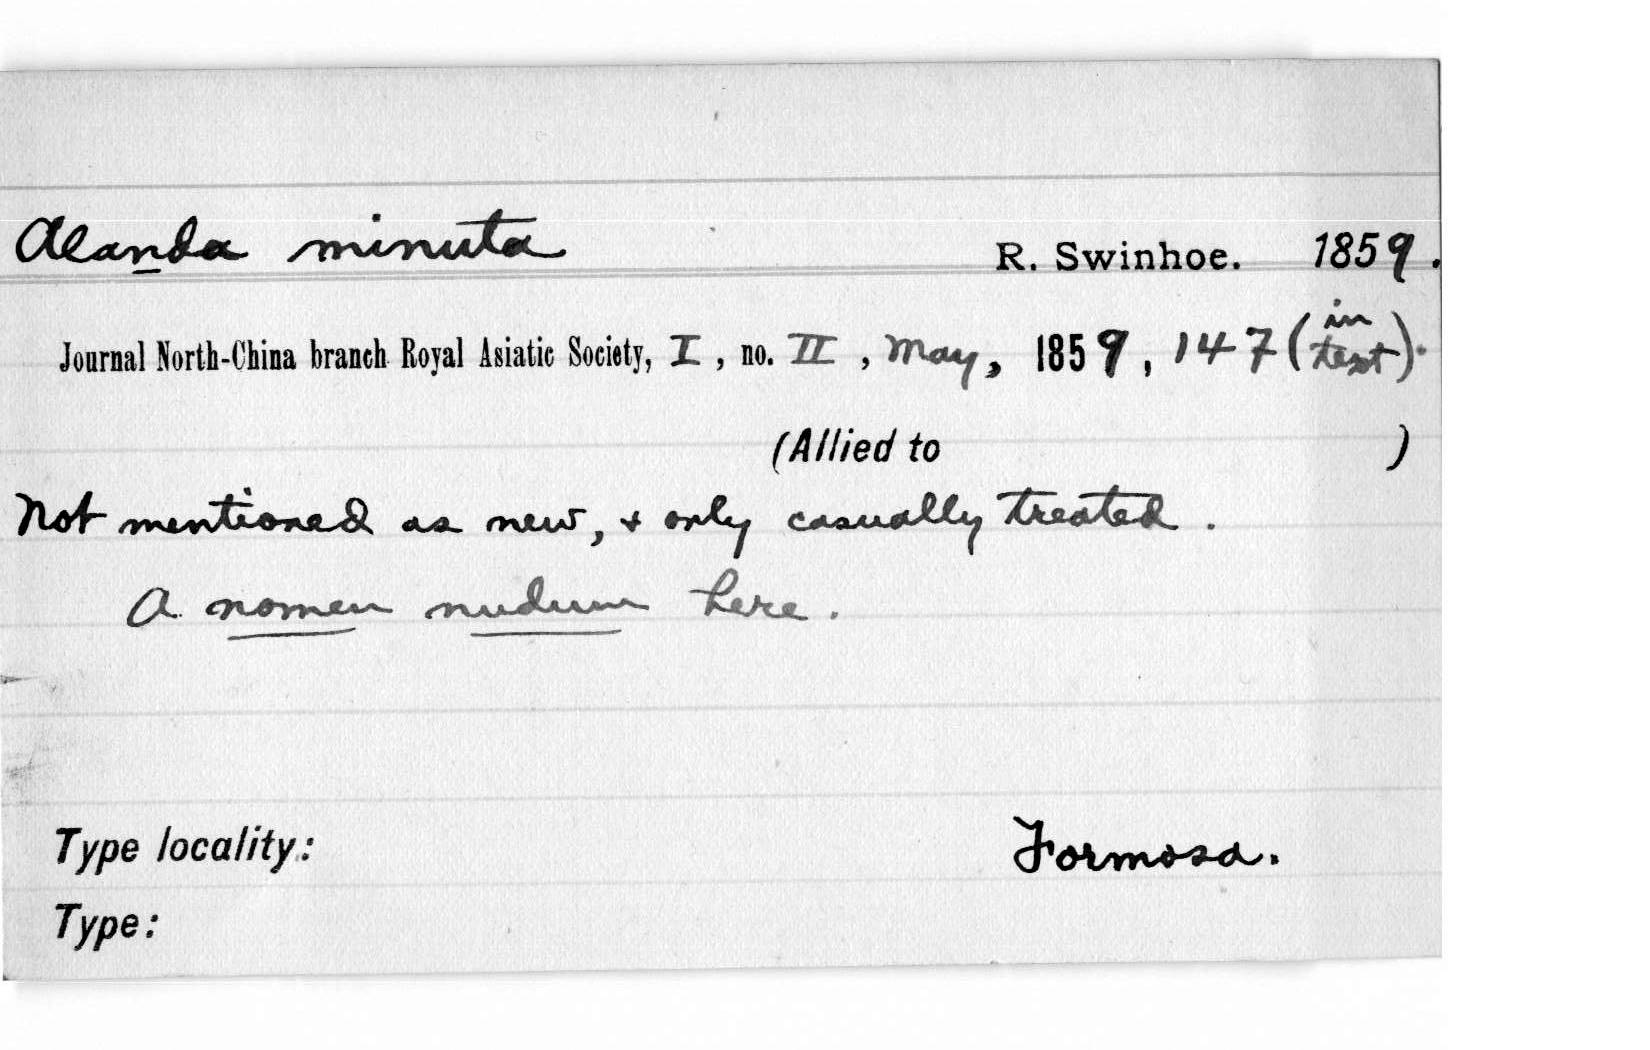 Alanda minuta R. Swinhoe. 1859.
Journal North-China branch Royal Asiatic Society, I, no. II, May, 1859, 147 (in text).
(Allied to )
Not mentioned as new, & only casually treated.
A nomen nudum here.
Type locality: Formosa.
Type: